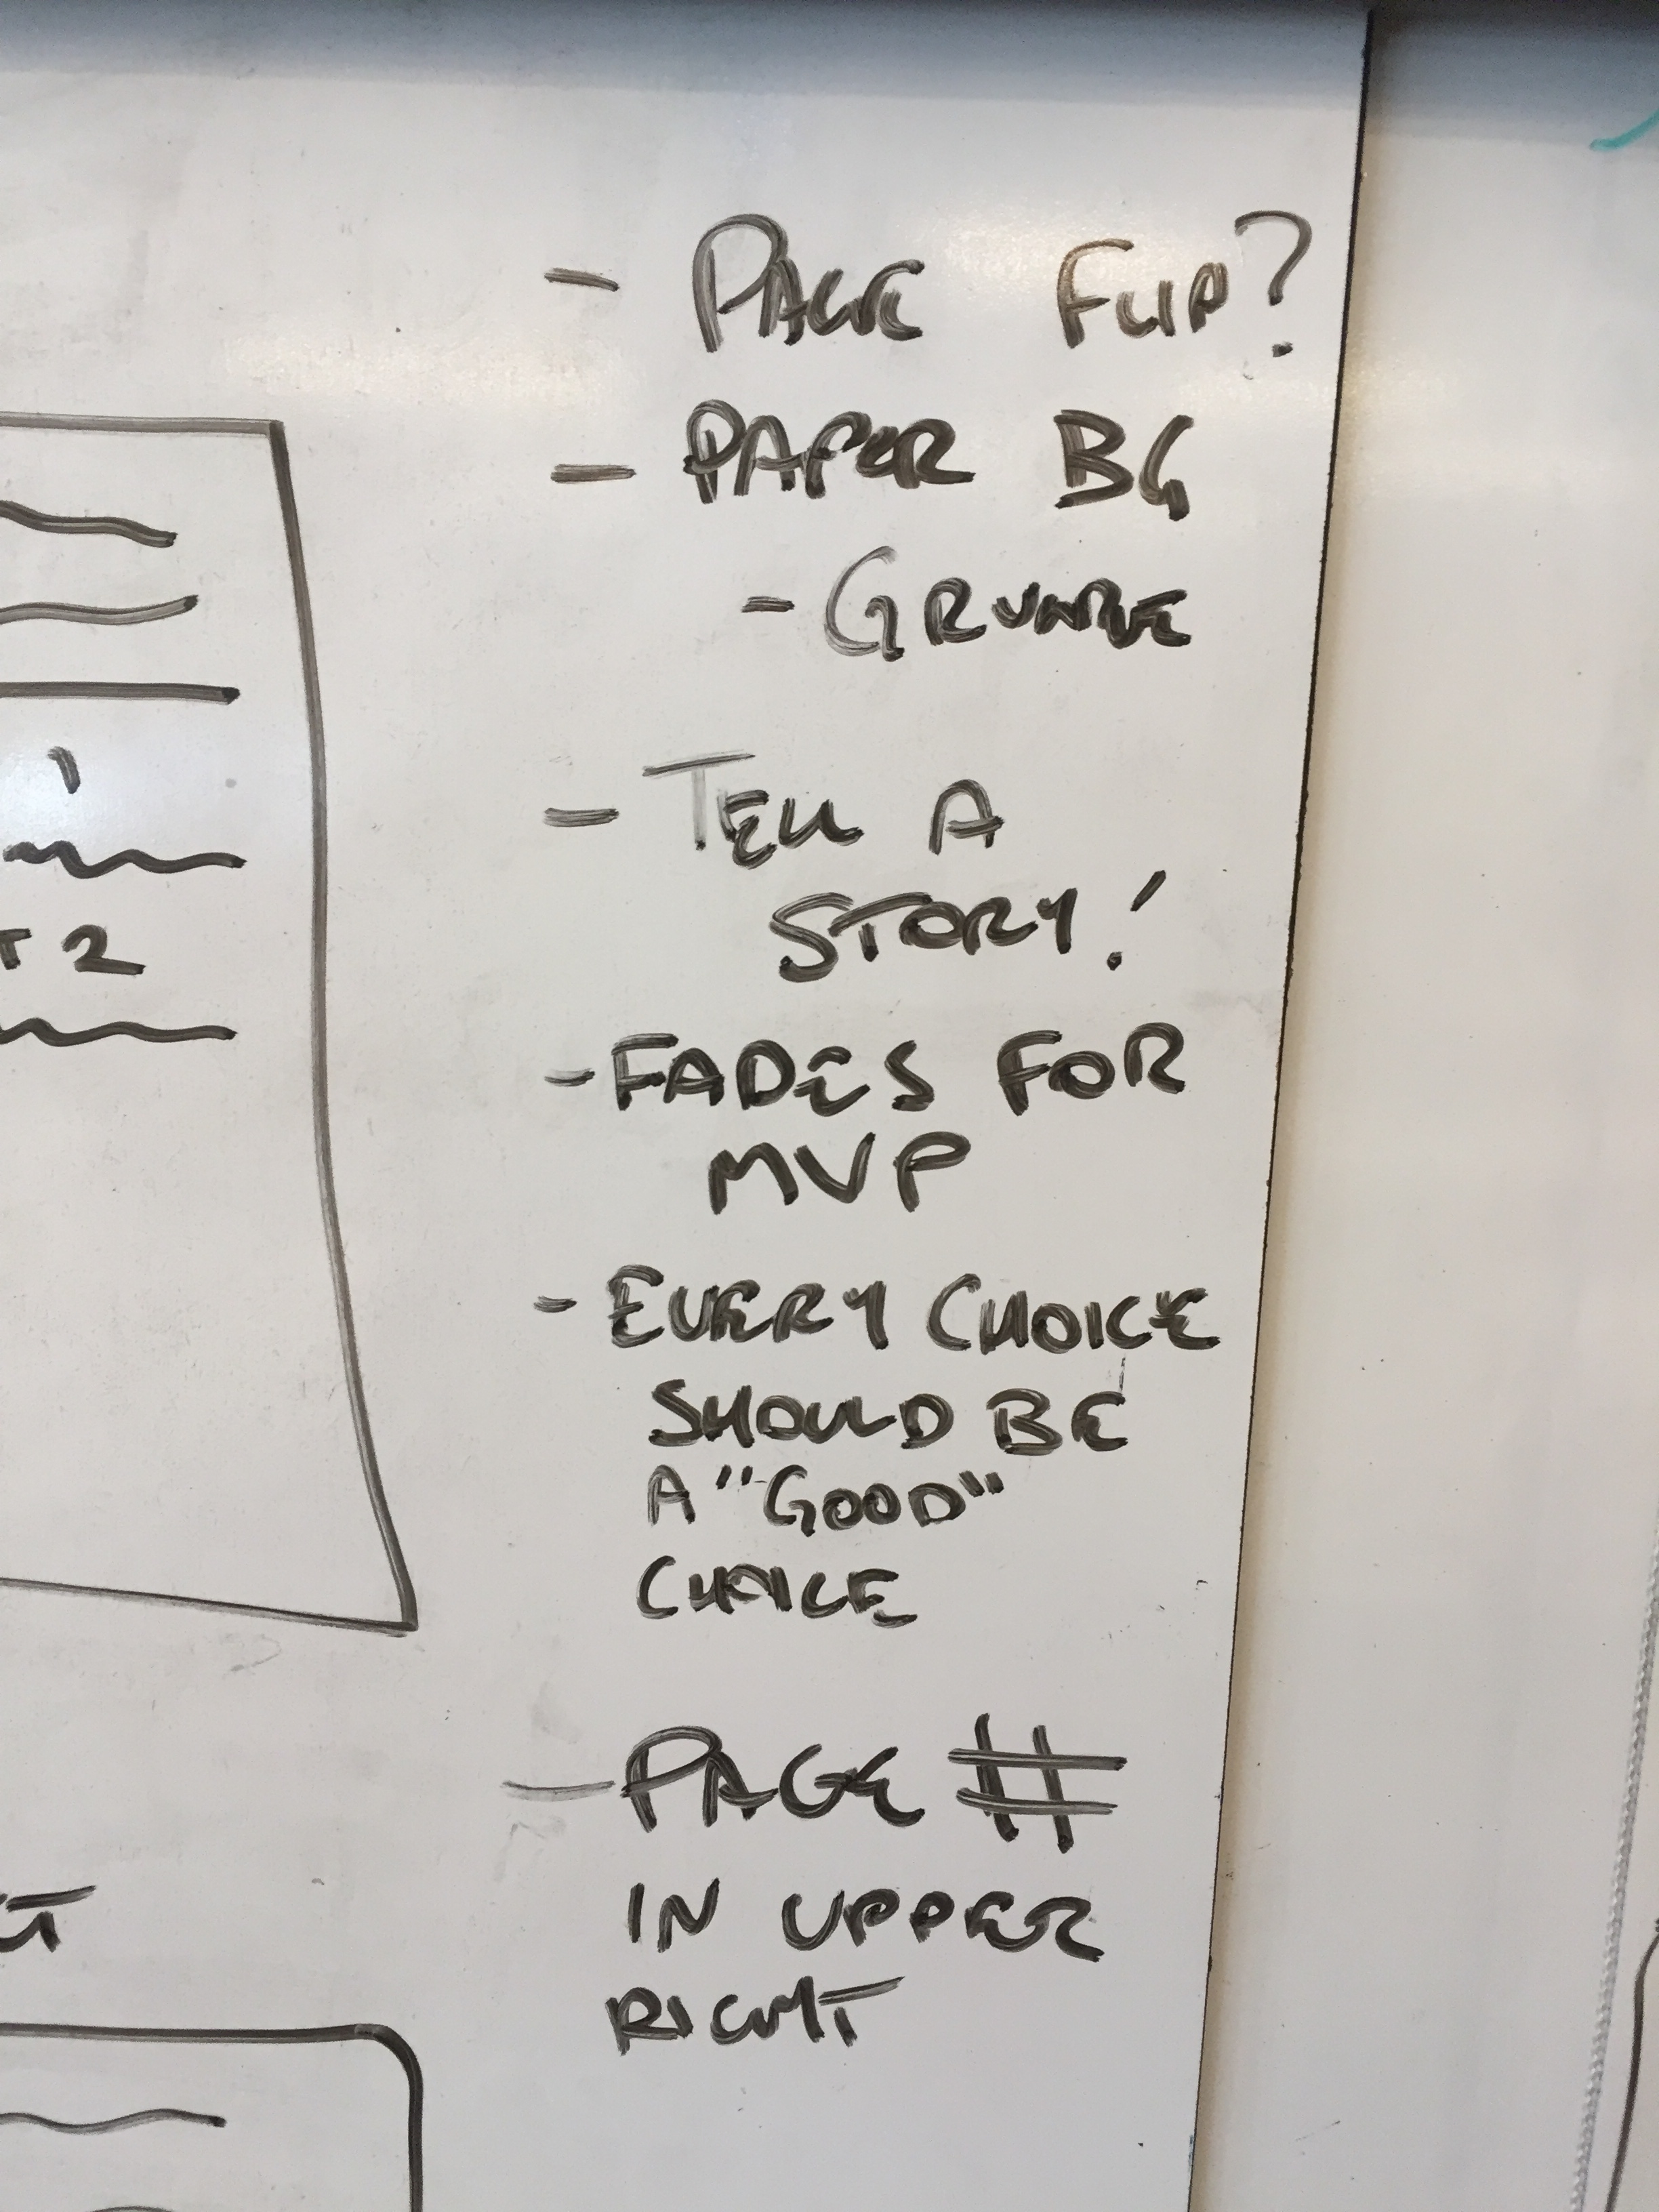 - PAGE FLIP?
- PAPER BG
- GRUNGE
- TELL A
STORY!
T 2
- FADES FOR
MVP
- EVERY CHOICE
SHOULD BE
A "GOOD"
CHOICE
- PAGE #
IN UPPER
RIGHT